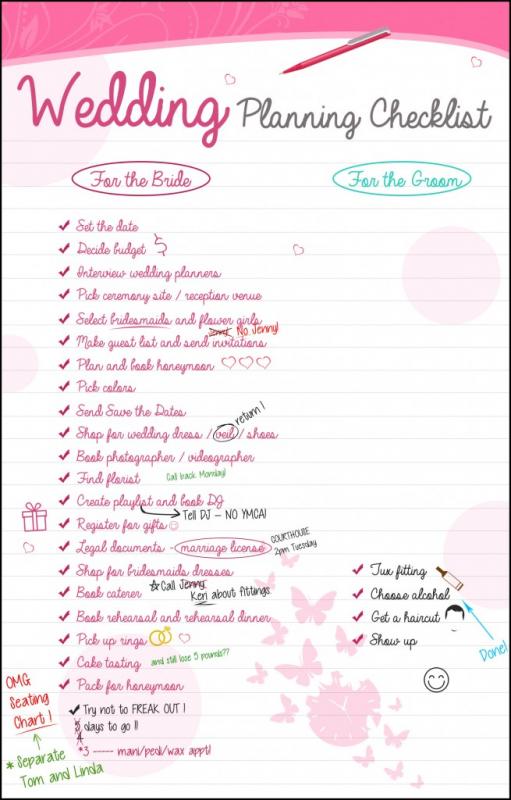 Wedding Planning Checklist
For the Bride
Set the date
Decide budget $
Interview wedding planners
Pick ceremony site / reception venue
Select bridesmaids and flower girls
Jenny No Jenny!
Make guest list and send invitations
Plan and book honeymoon
Pick colors
Send Save the Dates
return!
Shop for wedding dress / veil / shoes
Book photographer / videographer
Find florist Call back Monday!
Create playlist and book DJ
Tell DJ – NO YMCA!
Register for gifts
Legal documents - marriage license
COURTHOUSE
2pm Tuesday
Shop for bridesmaids dresses
Book caterer
Call Jenny
Keri about fittings
Book rehearsal and rehearsal dinner
Pick up rings
Cake tasting and still lose 5 pounds??
Pack for honeymoon
Try not to FREAK OUT !
5 days to go !!
4
*3 ----- mani/pedi/wax appt!
OMG
Seating
Chart !
* Separate
Tom and Linda
For the Groom
Tux fitting
Choose alcohol
Get a haircut
Show up
Done!